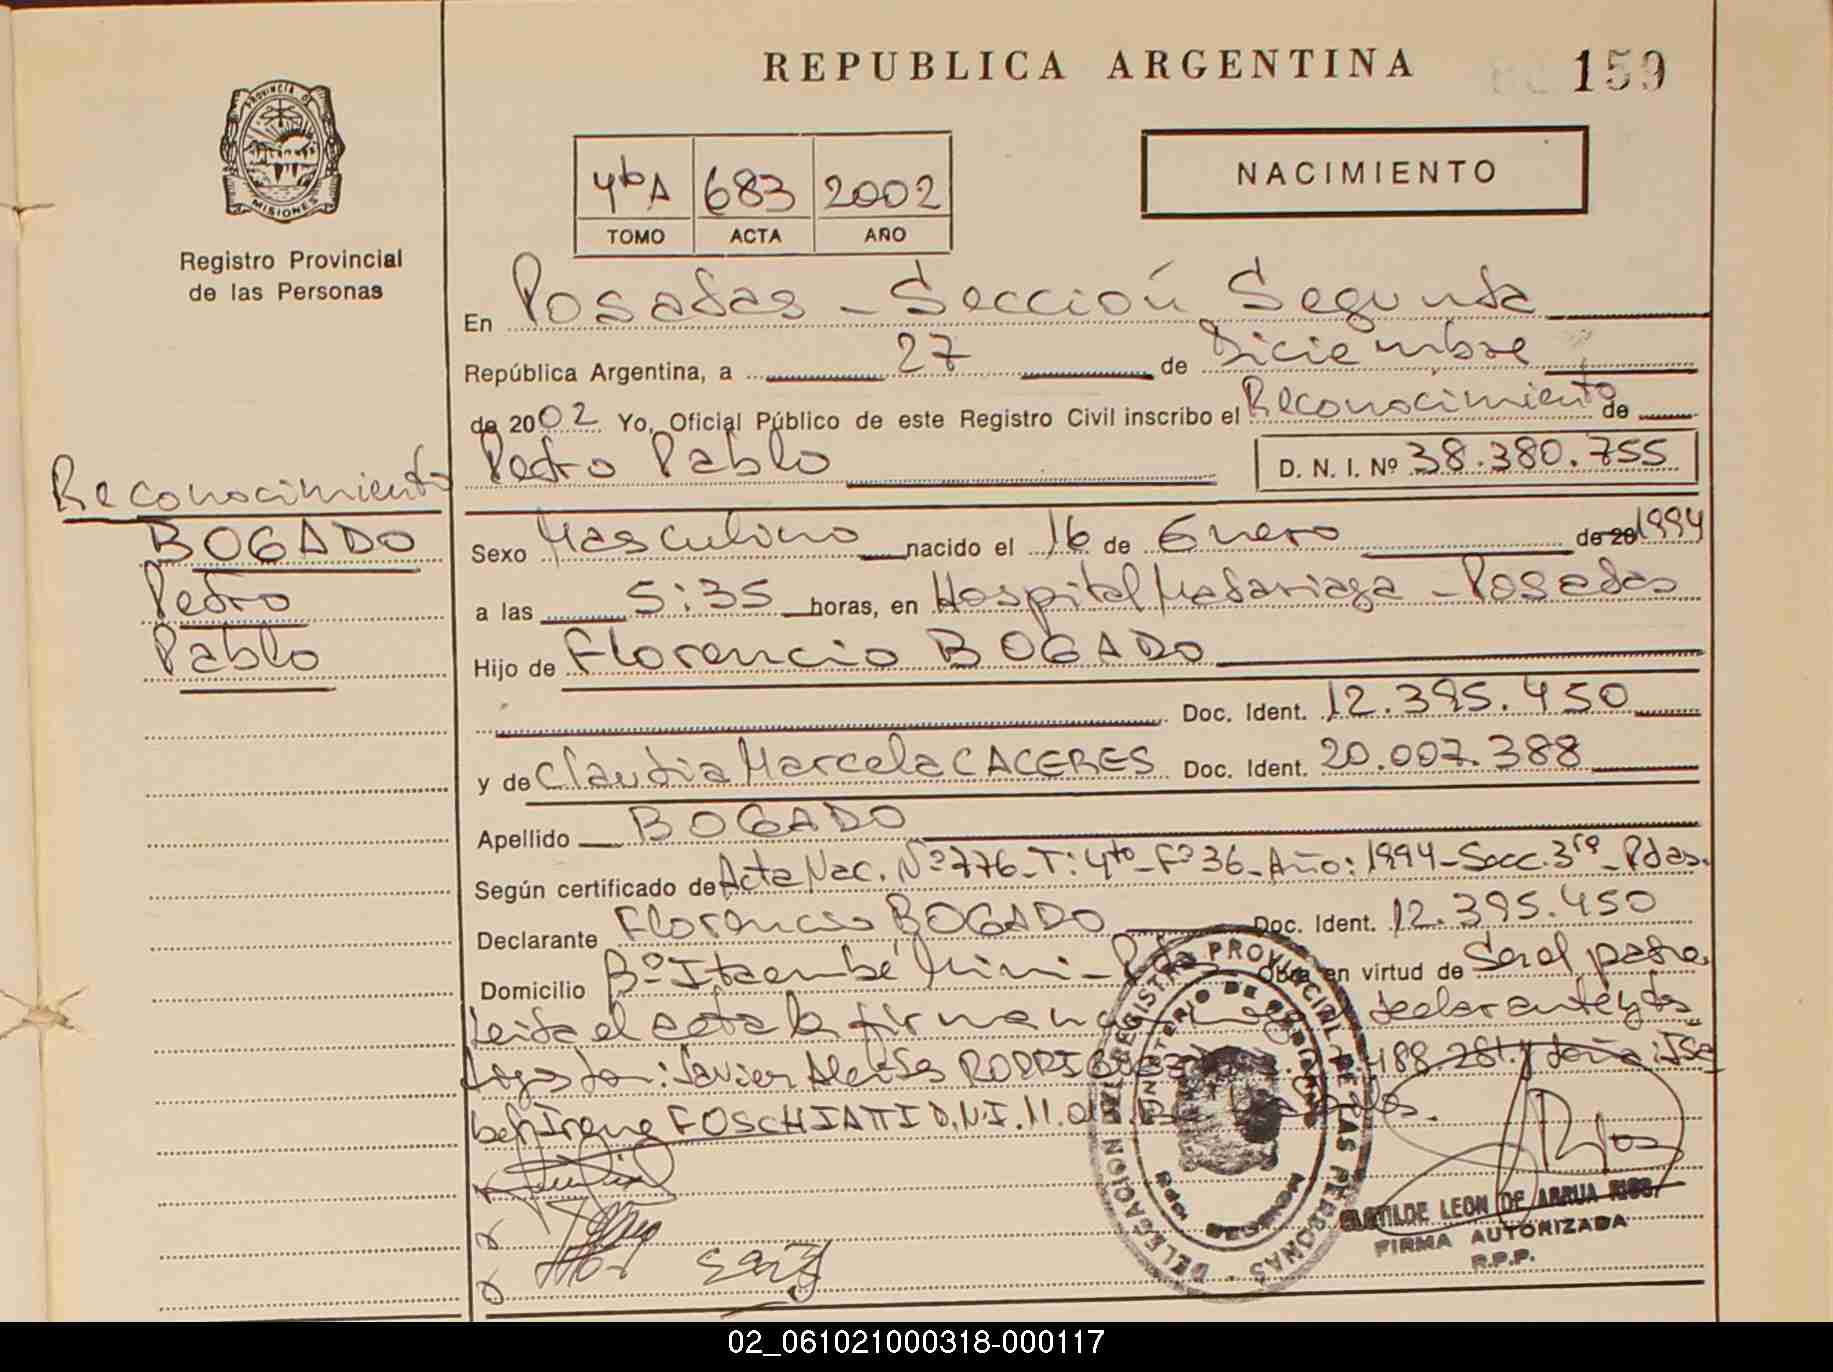 REPUBLICA ARGENTINA
159
PROVINCIA DE
MISIONES
Registro Provincial
de las Personas
4to A 683 2002
TOMO ACTA AÑO
NACIMIENTO
En Posadas - Sección Segunda
República Argentina, a 27 de Diciembre
de 2002 Yo, Oficial Público de este Registro Civil inscribo el Reconocimiento de
Pedro Pablo D. N. I. Nº 38.380.755
Reconocimiento
BOGADO
Pedro
Pablo
Sexo Masculino nacido el 16 de Enero de 20 1994
a las 5:35 horas, en Hospital Madariaga - Posadas
Hijo de Florencio BOGADO
Doc. Ident. 12.395.450
y de Claudia Marcela CACERES Doc. Ident. 20.007.388
Apellido BOGADO
Según certificado de Acta Nac. Nº 776 - T: 4to - Fº 36 - Año: 1994 - Secc. 3ra - Pdas.
Declarante Florencio BOGADO Doc. Ident. 12.395.450
Domicilio Bº Itaembé Mini - Pdas Obra en virtud de Ser el padre.
Leida el acta la firman declarante y los
Javier RODRIGUEZ 488.281 y doña: Isa
bel Irene FOSCHIATTI D.N.I. 11.0
DELEGACION DEL REGISTRO PROVINCIAL DE LAS PERSONAS
MINISTERIO DE GOBIERNO
Pdas. Misiones
CLOTILDE LEON DE ARRUA RIOS
FIRMA AUTORIZADA
R.P.P.
02_061021000318-000117